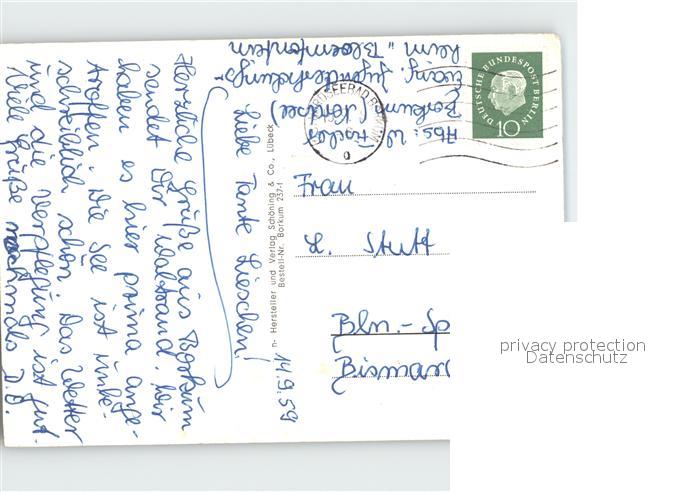 14.9.59
Liebe Tante Lieschen!
Herzliche Grüße aus Borkum
sendet Dir Waltraud. Wir
haben es hier prima ange-
troffen. Die See ist unbe-
schreiblich schön. Das Wetter
und die Verpflegung ist gut.
Viele Grüße
n- Hersteller und Verlag Schöning & Co., Lübeck
Bestell-Nr. Borkum 237-1
Abs: W. Fischer
Borkum (Nordsee)
Evang. Jugenderholungs-
heim "Bloemfontein
DEUTSCHE BUNDESPOST BERLIN
10
Frau
L. Stutt
Bln.-Sp
privacy protection
Datenschutz